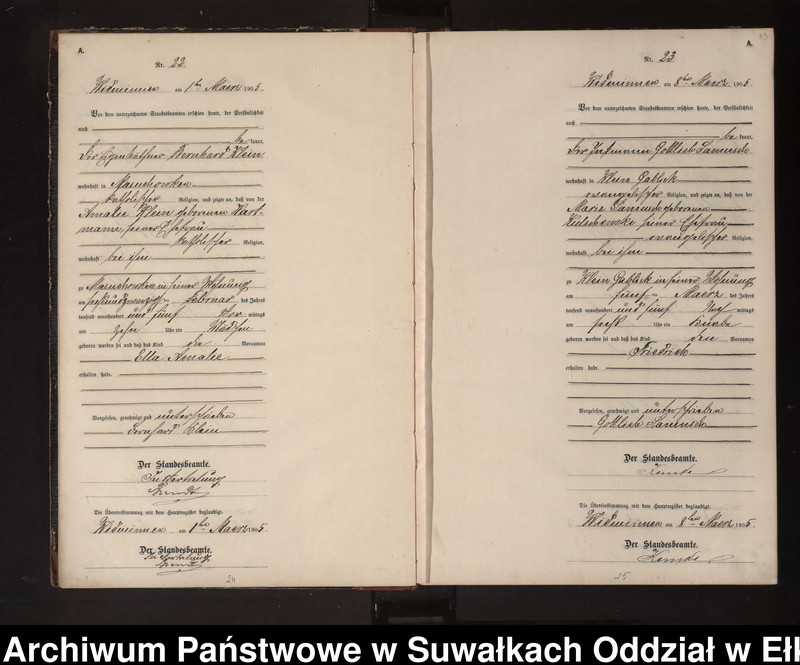 A.
Nr. 22.
Widminnen am 1ten Maerz 1905.
Vor dem unterzeichneten Standesbeamten erschien heute, der Persönlichkeit
nach
be kannt,
Der Eigenkäthner Bernhard Klein
wohnhaft in Masuchowken
katholischer Religion, und zeigte an, daß von der
Amalie Klein geborenen Hart-
mann, seiner Ehefrau
katholischer Religion,
wohnhaft bei ihm
zu Masuchowken in seiner Wohnung
am sechsundzwanzigten Februar des Jahres
tausend neunhundert und fünf Vor mittags
um zehn Uhr ein Mädchen
geboren worden sei und daß das Kind die Vornamen
Ella Amalie
erhalten habe.
Vorgelesen, genehmigt und unterschrieben
Bernhard Klein
Der Standesbeamte.
In Vertretung
Die Übereinstimmung mit dem Hauptregister beglaubigt.
Widminnen am 1ten Maerz 1905
Der Standesbeamte.
In Vertretung
24
13
A.
Nr. 23.
Widminnen am 8ten Maerz 1905.
Vor dem unterzeichneten Standesbeamten erschien heute, der Persönlichkeit
nach
be kannt,
Der Instmann Gottlieb
wohnhaft in Klein Gablick
evangelischer Religion, und zeigte an, daß von der
Marie geborenen
seiner Ehefrau
evangelischer Religion,
wohnhaft bei ihm
zu Klein Gablick in seiner Wohnung
am fünften Maerz des Jahres
tausend neunhundert und fünf Nach mittags
um sechs Uhr ein Knabe
geboren worden sei und daß das Kind den Vornamen
Friedrich
erhalten habe.
Vorgelesen, genehmigt und unterschrieben
Gottlieb
Der Standesbeamte.
Die Übereinstimmung mit dem Hauptregister beglaubigt.
Widminnen am 8ten Maerz 1905.
Der Standesbeamte.
25
Archiwum Państwowe w Suwałkach Oddział w Eł